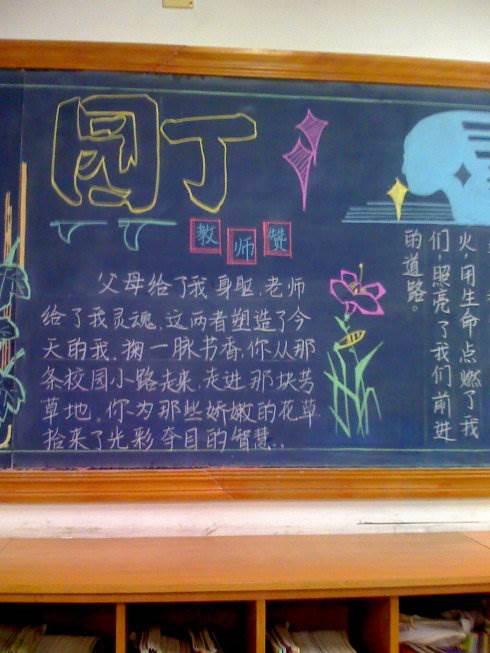 园丁
——教师赞
父母给了我身躯,老师
给了我灵魂,这两者塑造了今
天的我,掬一脉书香,你从那
条校园小路走来,走进那块芳
草地。你为那些娇嫩的花草
拾来了光彩夺目的智慧..
火,用生命点燃了我
们,照亮了我们前进
的道路。